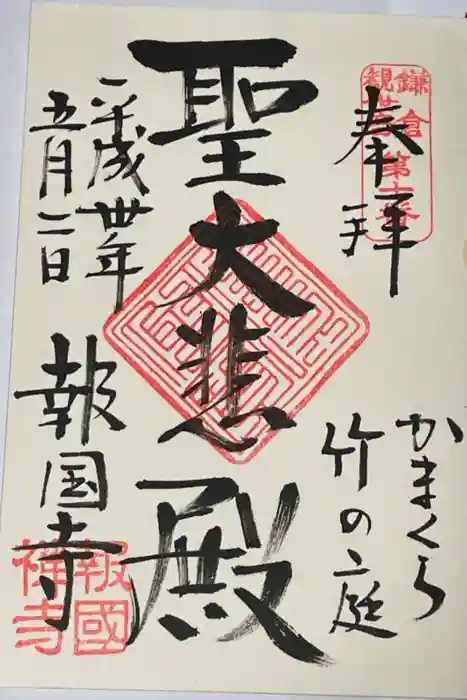 鎌倉
観世音
第十番
奉拝
かまくら
竹の庭
聖大悲殿
平成卅年
五月二日
報国寺
報國
禅寺